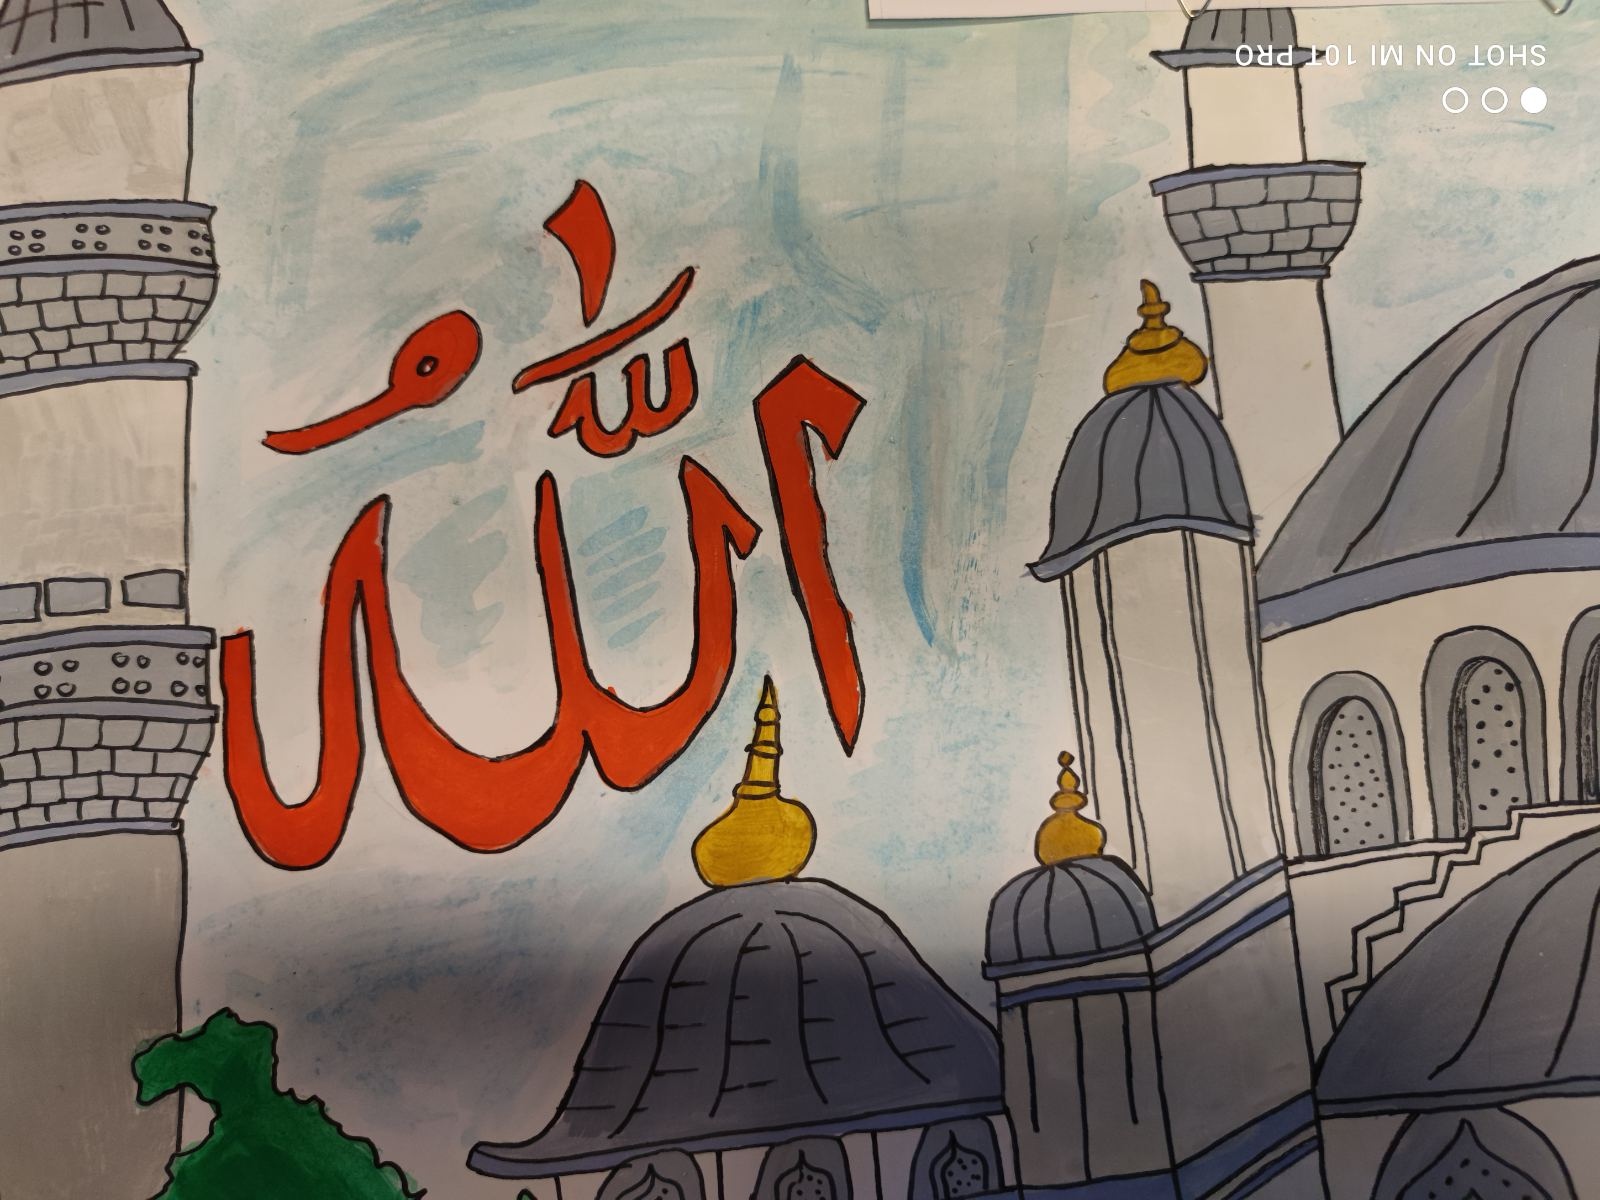 اللهُ
SHOT ON MI 10T PRO